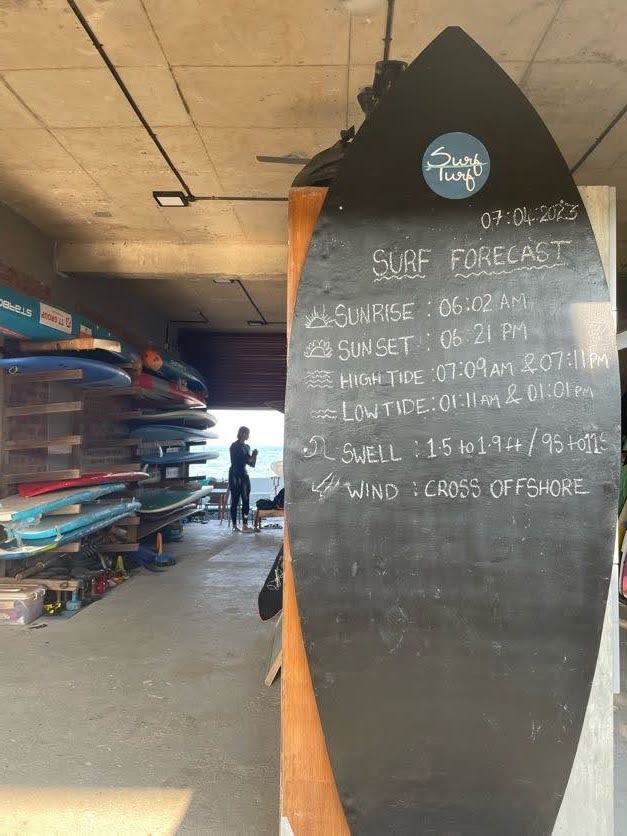 Surf
Turf
07:04:2023
SURF FORECAST
SUNRISE : 06:02 AM
SUNSET : 06:21 PM
HIGH TIDE : 07:09 AM & 07:11 PM
LOW TIDE : 01:11 AM & 01:01 PM
SWELL : 1.5 to 1.9 ft /
WIND : CROSS OFFSHORE